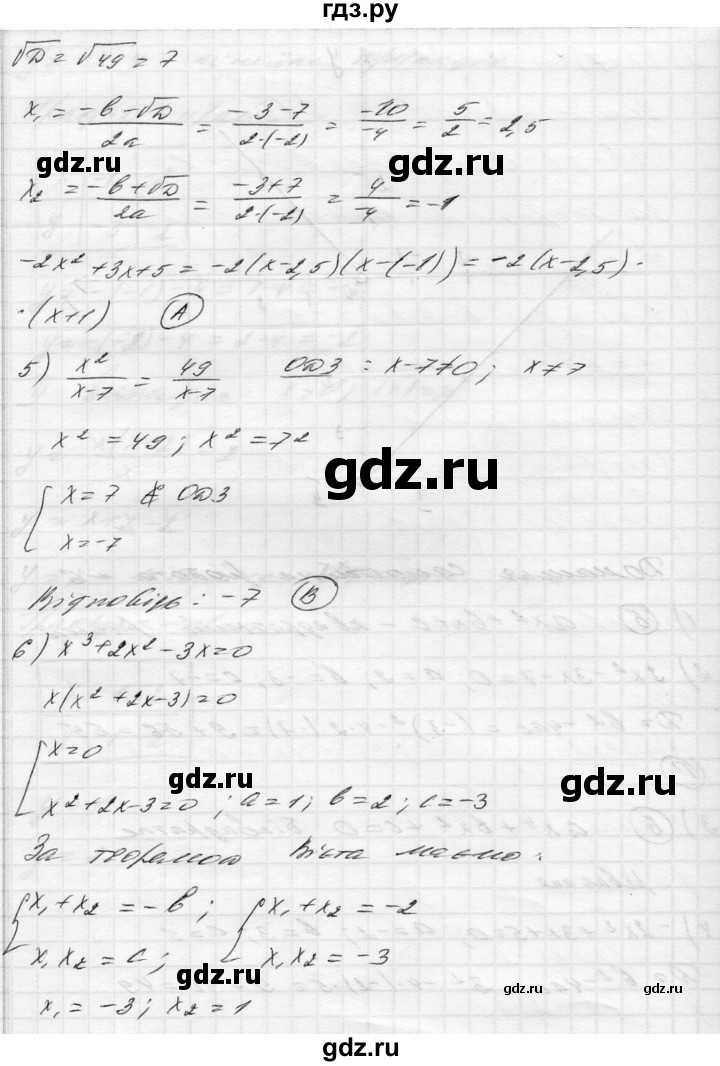 гдз.ру
√D = √49 = 7
x₁ = (-b-√D)/(2a) = (-3-7)/(2·(-2)) = (-10)/(-4) = 5/2 = 2,5
gdz.ru
gdz.ru
x₂ = (-b+√D)/(2a) = (-3+7)/(2·(-2)) = 4/(-4) = -1
-2x² + 3x + 5 = -2(x-2,5)(x-(-1)) = -2(x-2,5) ·
·(x+1) (А)
5) x²/(x-7) = 49/(x-7) ОДЗ: x-7≠0; x≠7
x² = 49; x² = 7²
gdz.ru
[ x = 7 ∉ ОДЗ
x = -7
Відповідь: -7 (В)
6) x³+2x²-3x=0
x(x²+2x-3)=0
[ x=0
gdz.ru
gdz.ru
x²+2x-3=0; a=1; b=2; c=-3
За теоремою Вієта маємо:
{ x₁+x₂ = -b; { x₁+x₂ = -2
x₁x₂ = c; x₁x₂ = -3
gdz.ru
gdz.ru
gdz.ru
x₁ = -3; x₂ = 1
gdz.ru